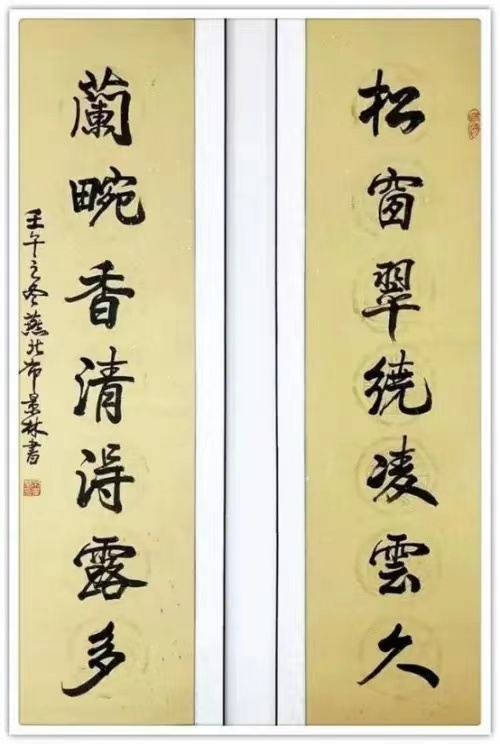 松窗翠繞凌雲久
蘭畹香清得露多
壬午之冬燕北布景林書